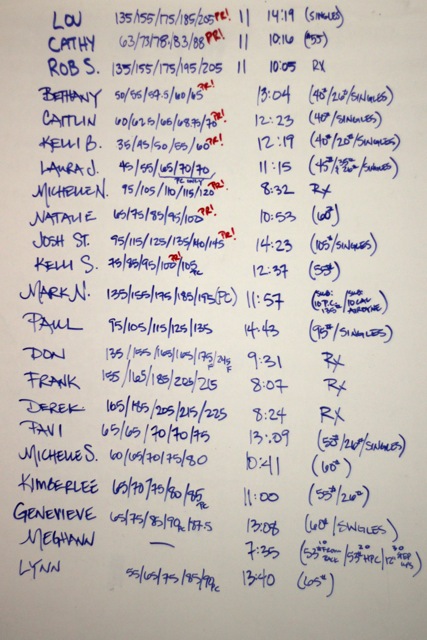 LOU 135/155/175/185/205 PR! 11 14:19 (SINGLES)
CATHY 63/73/78/83/88 PR! 11 10:16 (#55)
ROB S. 135/155/175/195/205 11 10:05 RX
BETHANY 50/55/57.5/60/65 PR! 13:04 (40#/26#/SINGLES)
CAITLIN 60/62.5/65/68.75/70 PR! 12:23 (40#/SINGLES)
KELLI B. 35/45/50/55/60 PR! 12:19 (40#/20#/SINGLES)
LAURA J. 45/55/65/70/70 11:15 (45#/SINGLES)
PC ONLY
MICHELLE N. 95/105/110/115/120 PR! 8:32 RX
NATALIE 65/75/85/95/100 PR! 10:53 (60#)
JOSH ST. 95/115/125/135/140/145 PR! 14:23 (105#/SINGLES)
KELLI S. 75/85/95/100 PR!/105 PC 12:37 (55#)
MARK N. 135/155/175/185/195 (PC) 11:57 (SUB: 10 P.C.s 135# / SUB: 10 CAL AIRDYNE)
PAUL 95/105/115/125/135 14:43 (95#/SINGLES)
DON 135/155/165/165/175 F/245 F 9:31 RX
FRANK 155/165/185/205/215 8:07 RX
DEREK 165/185/205/215/225 8:24 RX
TAVI 65/65/70/70/75 13:09 (50#/26#/SINGLES)
MICHELLE S. 60/65/70/75/80 10:41 (60#)
KIMBERLEE 63/70/75/80/85 PC 11:00 (55#/26#)
GENEVIEVE 65/75/85/90 PC/87.5 13:08 (60#/SINGLES)
MEGHANN — 7:35 (53#/53# HPC/12" STEP UPS)
LYNN 55/65/75/85/90 PC 13:40 (65#)